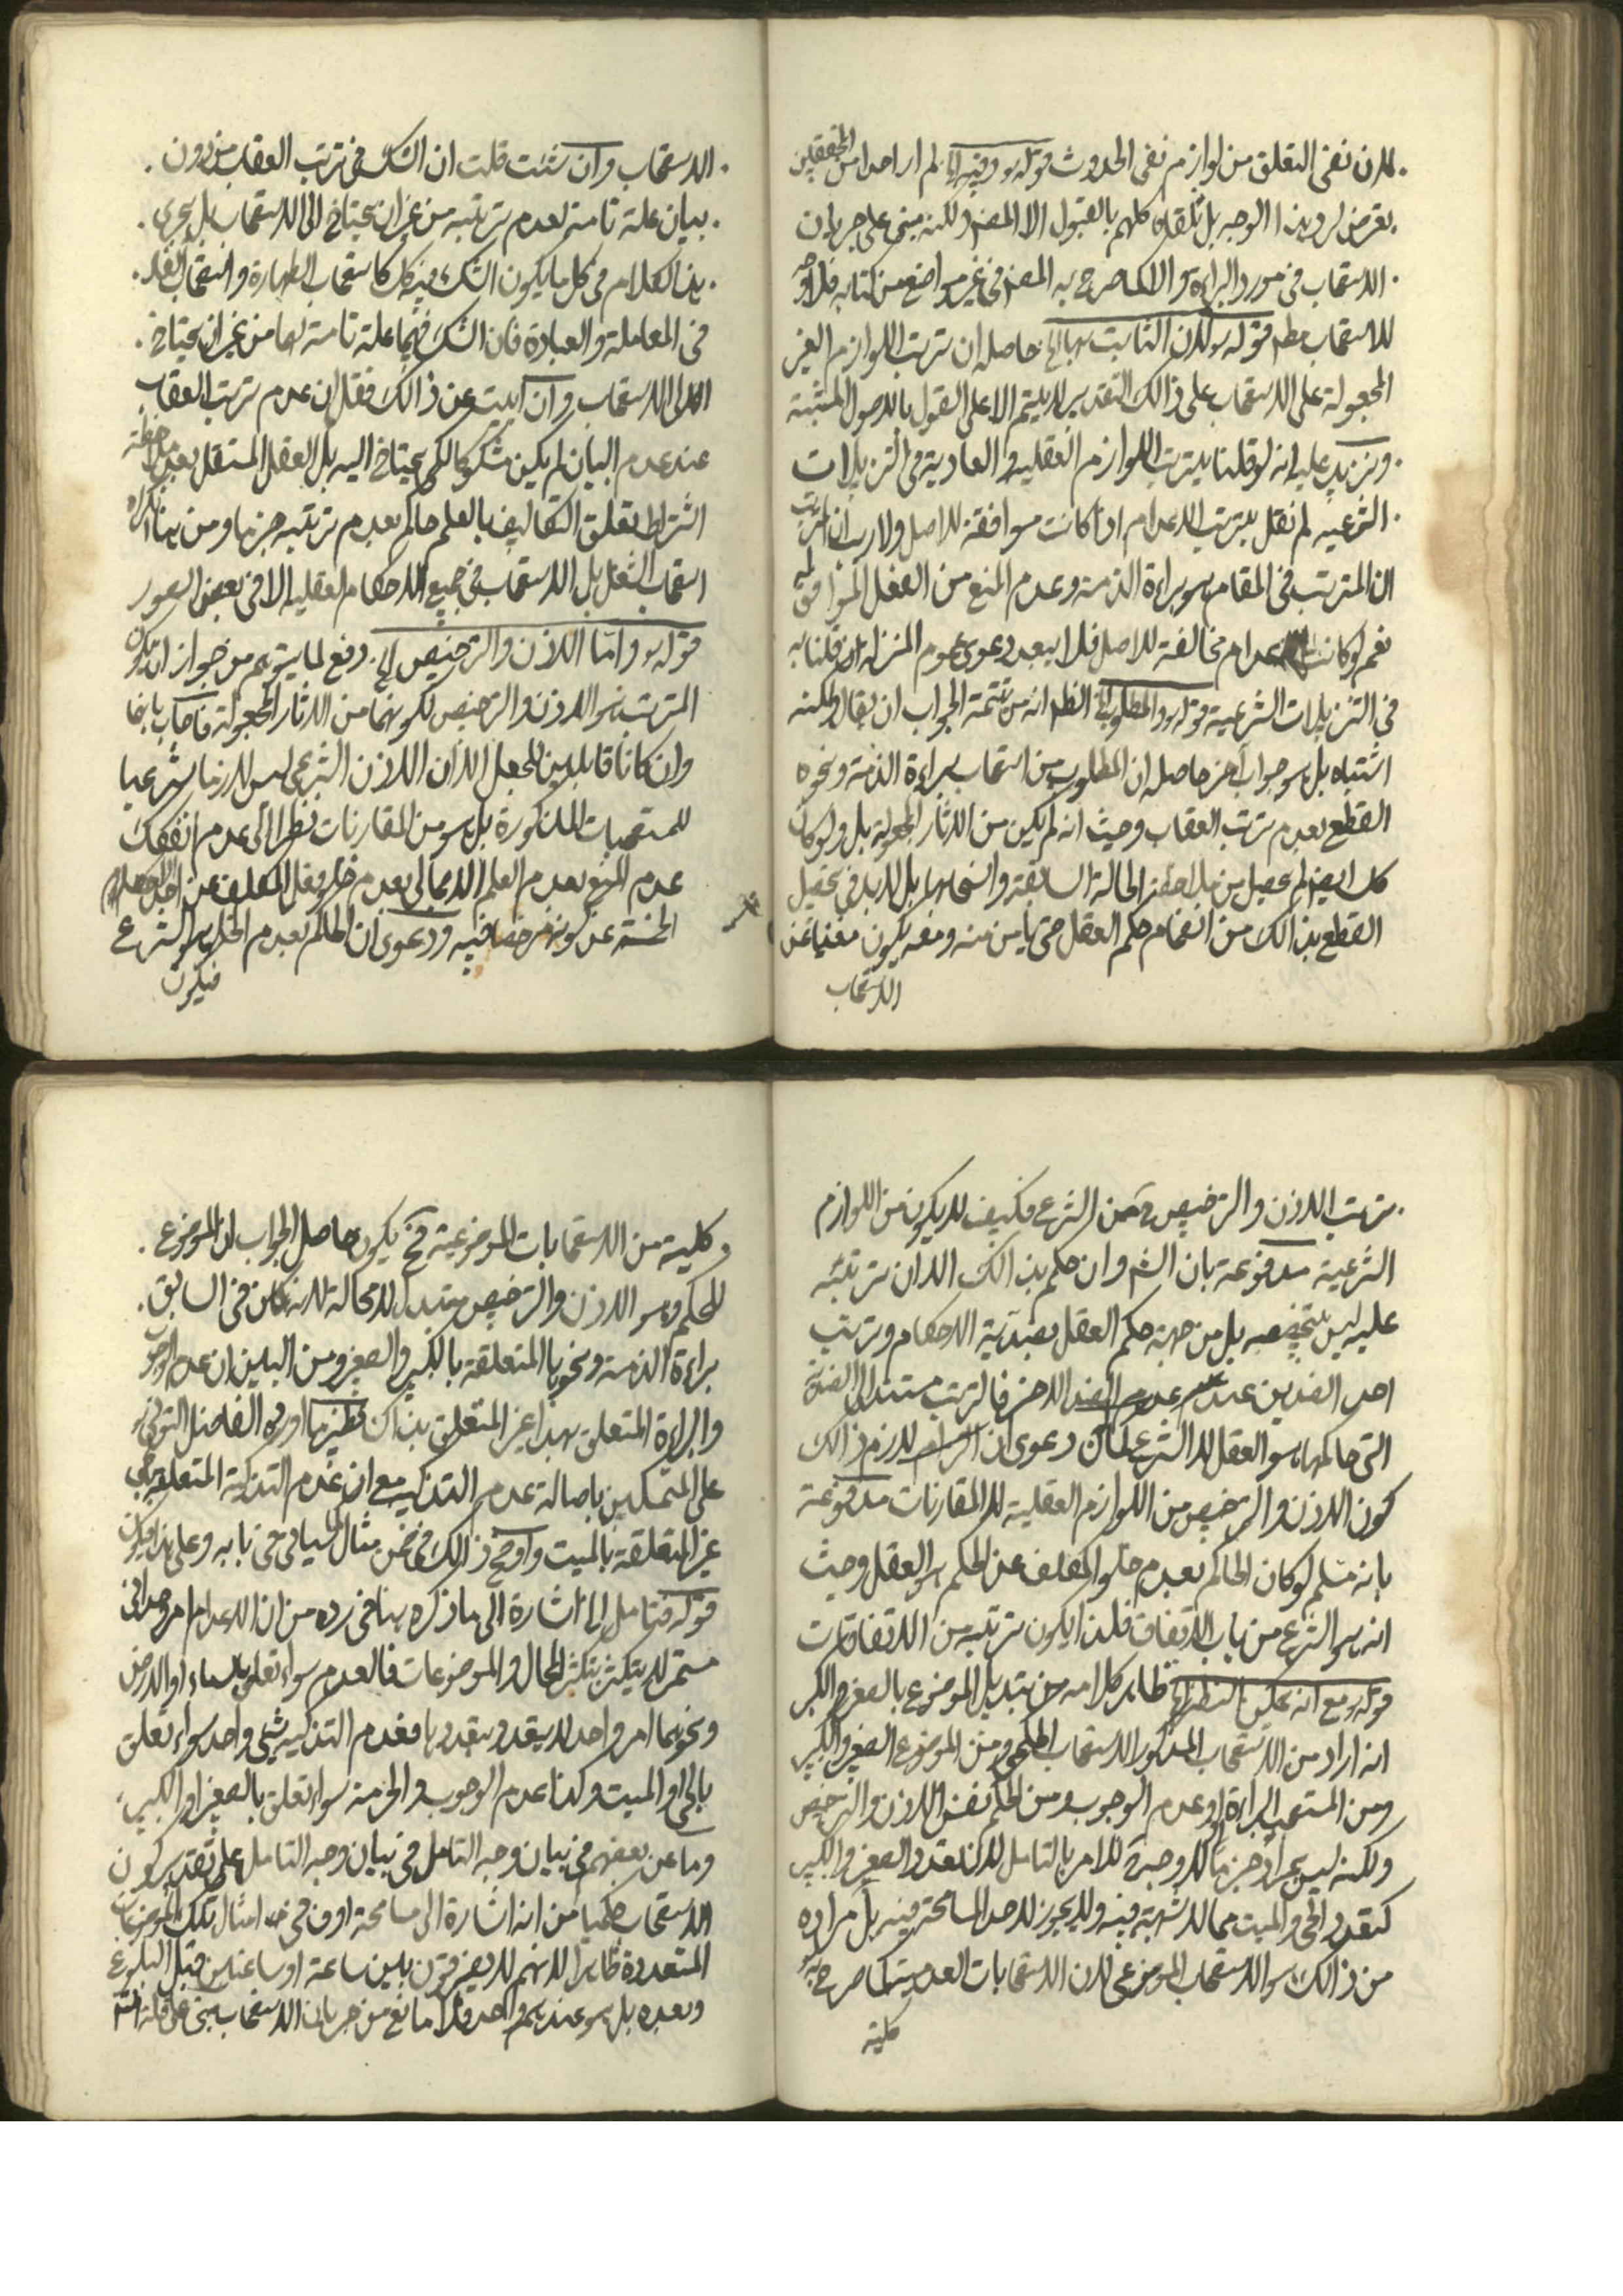 لان نفى التعلق من لوازم نفى الحدوث قوله ره وفيه الخ لم ار احدا من المحققين
تعرض لرد هذا الوجه بل تلقاه كلهم بالقبول الا المصنف ولكنه مبنى على جريان
الاستصحاب فى مورد البراءة والا كما صرح به المصنف فى غير مواضع من كتابه فلا وجه
للاستصحاب مطلقا قوله ره لان الثابت بها الخ حاصله ان ترتب اللوازم الغير
المجعولة على الاستصحاب على ذالك التقدير لا يتم الا على القول بالاصول المثبتة
ونزيد عليه انه لو قلنا بترتب اللوازم العقلية والعادية فى التنزيلات
الشرعية لم نقل بترتب الاعدام اذا كانت موافقة للاصل ولا ريب
ان المترتب فى المقام هو براءة الذمة وعدم المنع من الفعل الموافق له
نعم لو كانت الاعدام مخالفة للاصل فلا يبعد دعوى عموم المنزلة ان قلنا به
فى التنزيلات الشرعية قوله ره والمطلوب الخ الظاهر انه من تتمة الجواب ان يقال ولكنه
اشتباه بل هو جواب اخر حاصله ان المطلوب من استصحاب براءة الذمة ونحوه
القطع بعدم ترتب العقاب وحيث انه لم يكن من الاثار المجعولة بل ولو كان
كك ايضا لم يحصل من ملاحظة الحالة السابقة وانسحابها بل لابد فى تحصيل
القطع بذالك من انضمام حكم العقل حتى يأمن منه ومعه يكون مغنيا عن
الاستصحاب
الاستصحاب وان شئت قلت ان الشك فى ترتب العقاب من دون
بيان علة تامة لعدم ترتبه من غير ان يحتاج الى الاستصحاب بل يجرى
هذا الكلام فى كل ما يكون الشك فيه كك كاستصحاب الطهارة واستصحاب الفساد
فى المعاملة والعبادة فان الشك فيهما علة تامة لها من غير ان يحتاج
الى الاستصحاب وان ابيت عن ذالك فقل ان عدم ترتب العقاب
عند عدم البيان لم يكن مشكوكا لكى يحتاج اليه بل العقل المستقل بعد ملاحظة
اشتراط تعلق التكاليف بالعلم حاكم بعدم ترتبه جزما ومن هنا انكر
استصحاب الشغل بل الاستصحاب فى جميع الاحكام العقلية الا فى بعض الصور
قوله ره واما الاذن والترخيص الخ دفع لما يتوهم من جواز ان يكون
المترتب هو الاذن والترخيص لكونهما من الاثار المجعولة فاجاب بانهما
وان كانا قابلين للجعل الا ان الاذن الشرعى ليس لازما شرعيا
للمستصحبات المذكورة بل هو من المقارنات نظرا الى عدم انفكاك
عدم المنع بعدم العلم الاجمالى بعدم خلو فعل المكلف عن احد الاحكام
الخمسة عن كونه مرخصا فيه ودعوى ان الحاكم بعدم الخلو هو الشرع
فيكون
ترتب الاذن والترخيص ح من الشرع فكيف لا يكون من اللوازم
الشرعية مدفوعة بان الشرع وان حكم بذالك الا ان ترتبه
عليه ليس بتخصيصه بل من جهة حكم العقل بضدية الاحكام وترتيب
احد الضدين عند عدم الضد الاخر فالترتب مستند الى الضدية
التى حاكمها هو العقل لا الشرع كما ان دعوى ان لازم ذالك
كون الاذن والترخيص من اللوازم العقلية لا المقارنات مدفوعة
بانه مسلم لو كان الحاكم بعدم خلو المكلف عن الحكم هو العقل وحيث
انه هو الشرع من باب الاتفاق فلذا يكون ترتبه من الاتفاقيات
قوله ره مع انه يمكن النظر الخ ظاهر كلامه من تبديل الموضوع بالصغر والكبر
انه اراد من الاستصحاب المذكور الاستصحاب الحكمى ومن الموضوع الصغير والكبير
ومن المستصحب البراءة او عدم الوجوب ومن الحكم نفس الاذن والترخيص
ولكنه ليس بمراد جزما والا لا وجه ح للامر بالتامل لان تعدد الصغير والكبير
كتعدد الحى والميت مما لا شبهة فيه ولا يجوز لاحد المسامحة فيه بل مراده
من ذالك هو الاستصحاب الموضوعى لان الاستصحابات العدمية كما صرح به
كلية
كلية من الاستصحابات الموضوعية فح يكون حاصل الجواب ان الموضوع
للحكم وهو الاذن والترخيص متبدل لا محالة لانه كان فى السابق
براءة الذمة ونحوها المتعلقة بالكبير والصغير ومن البين ان عدم الوجوب
والبراءة المتعلق بهذا غير المتعلق بذاك نظير ما اورده الفاضل التونى ره
على المتمسكين باصالة عدم التذكية مع ان عدم التذكية المتعلقة بالحى
غير المتعلقة بالميت واوضح ذالك فى ضمن مثال الضاحك فى بابه وعلى هذا يكون
قوله فتامل الخ اشارة الى ما ذكره هنا فى رده من ان الاعدام امر وحدانى
مستمر لا يتكثر بتكثر المحال والموضوعات فالعدم سواء تعلق بالسماء او الارض
ونحوهما امر واحد لا يتعدد بتعددها فعدم التذكية شئ واحد سواء تعلق
بالحى او الميت وكذا عدم الوجوب والحرمة سواء تعلق بالصغير او الكبير
وما عن بعضهم فى بيان وجه التامل على تقدير كون
الاستصحاب حكميا من انه اشارة الى مسامحة العرف فى امثال تلك الموضوعات
المتعددة ظاهرا لانهم لا يفرقون بين ساعة او ساعتين قبل البلوغ
وبعده بل هو عندهم واحد فلا مانع من جريان الاستصحاب